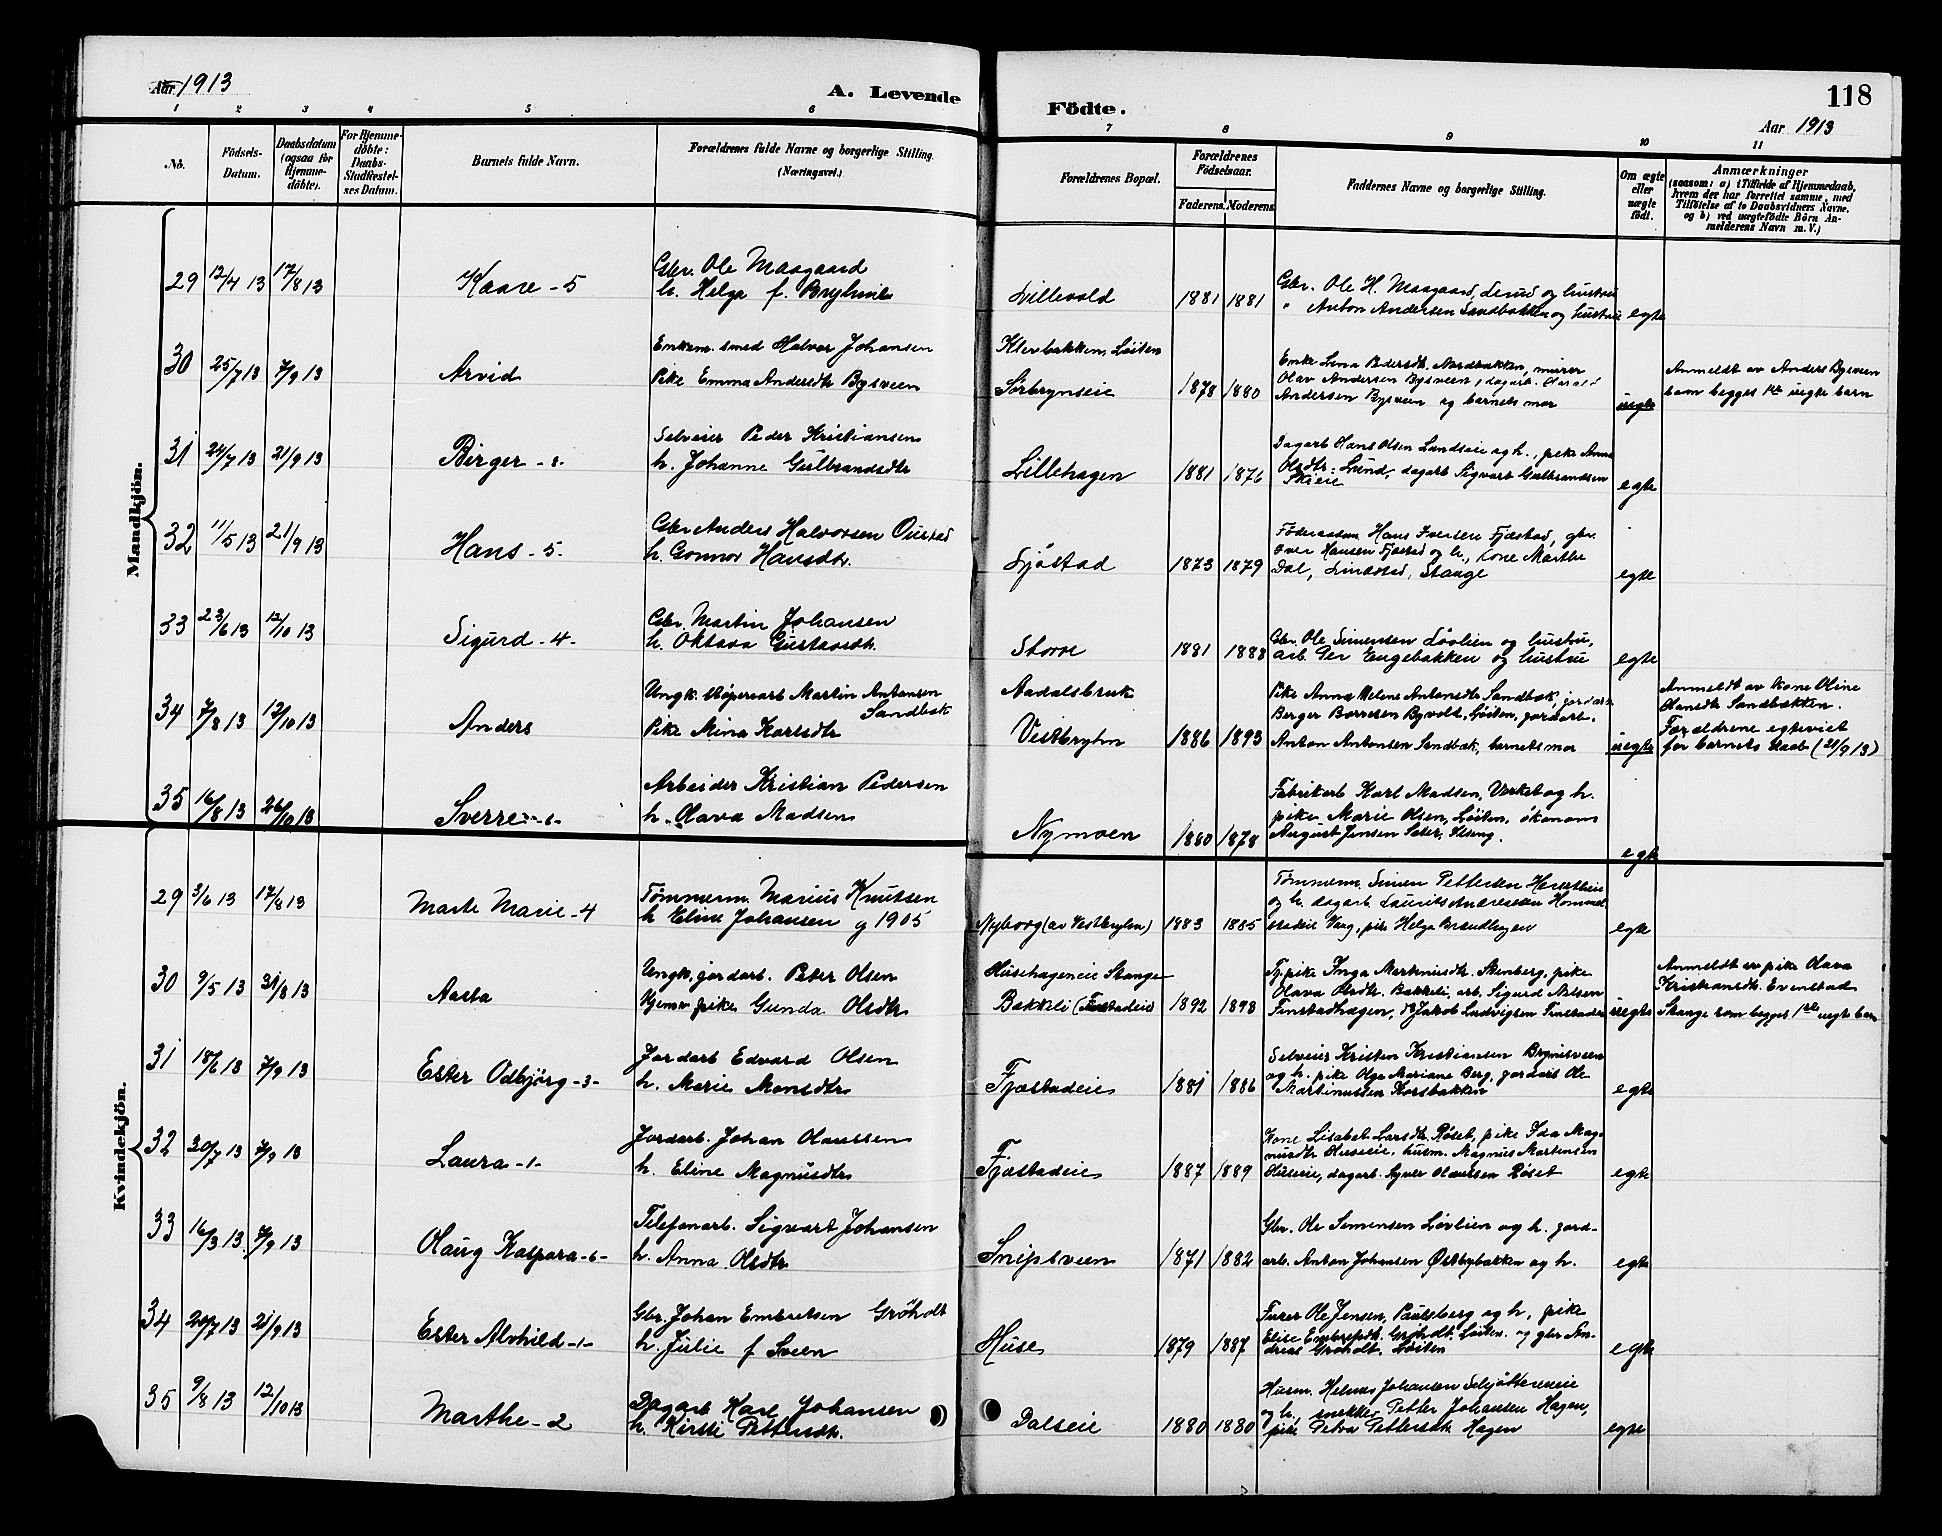 Aar 1913
A. Levende
Födte.
118
Aar 1913
1 2 3 4 5 6 7 8 9 10 11
No.
Födsels-
Datum.
Daabsdatum
(ogsaa for
Hjemme-
döbte).
For Hjemme-
döbte:
Daabs-
Stadfæstel-
ses Datum.
Barnets fulde Navn.
Forældrenes fulde Navne og borgerlige Stilling.
(Næringsvei.)
Forældrenes Bopæl.
Forældrenes
Födselsaar.
Faderens. Moderens.
Faddernes Navne og borgerlige Stilling.
Om ægte
eller
uægte
födt.
Anmærkninger
(saasom: a) i Tilfælde af Hjemmedaab,
hvem der har forrettet samme, med
Tilföielse af to Daabsvidners Navne,
og b) ved uægtefödte Börn An-
melderens Navn m. V.)
Mandkjön.
29 12/4 13 17/8 13 Kaare - 5
Gbr. Ole Maagaard
h. Helga f. Bryhni
Lillevold 1881 1881
Gbr. Ole H. Maagaard, Lerud og hustru
" Anton Andersen Sandbakken og hustru
egte
30 25/7 13 7/9 13 Arvid
Enkem. smed Halvor Johansen
Pike Emma Andersdtr Bysveen
Klevbakken, Løiten
Sørbrynseie 1878 1880
Enke Lina Pedersdtr. Nordbakken, murer
Olav Andersen Bysveen, dagarb. Harald
Andersen Bysveen og barnets mor
uegte
Anmeldt av Anders Bysveen
som begges 1ste uegte barn
31 24/7 13 21/9 13 Birger - 8.
Selveier Peder Kristiansen
h. Johanne Gulbrandsdtr
Lillehagen 1881 1876
Dagarb Hans Olsen Lundseie og h., pike Anna
Olsdtr. Lund, dagarb Sigvart Gulbrandsen
Skieie
egte
32 11/5 13 21/9 13 Hans - 5 -
Gbr Anders Halvorsen Oustad
h. Gonnor Hansdtr.
Ljøstad 1873 1879
Föderaadsm. Hans Iversen Fjæstad, gbr.
Iver Hansen Fjæstad og h., kone Marthe
Dal, Lindstad, Stange
egte
33 23/6 13 12/10 13 Sigurd - 4 -
Gbr. Martin Johansen
h. Oktava Gustavsdtr.
Storve 1881 1888
Gbr. Ole Simensen Løvlien og hustru,
arb. Per Engebakken og hustru
egte
34 7/8 13 12/10 13 Anders
Ungk. støperarb Martin Antonsen
Sandbæk
Pike Mina Karlsdtr
Aadalsbruk
Vestbryhn 1886 1893
Pike Anna Helene Antonsdtr Sandbæk, jordarb
Berger Børresen Byvolt, Løiten, jordarb.
Anton Antonsen Sandbæk, barnets mor
uegte
Anmeldt av kone Oline
Olausdtr Sandbækken.
Forældrene egteviet
før barnets daab (21/9 13)
35 16/8 13 26/10 13 Sverre - 6 -
Arbeider Kristian Pedersen
h. Olava Madsen
Nymoen 1880 1878
Fabrikarb Karl Madsen, Verket og h.
pike Marie Olsen, Løiten, økonom
August Jensen Sæter, Steng.
egte
Kvindekjön.
29 3/6 13 17/8 13 Marte Marie - 4
Tømmerm. Marius Knutsen
h Eline Johansen g 1905
Nyborg (av Vestbryhn) 1883 1885
Tømmerm. Simen Pettersen
og h. dagarb Laurits Andreassen Hommel-
stadeie Vang, pike Helga Brændhagen
egte
30 9/5 13 31/8 13 Aasta
Ungk. jordarb. Peter Olsen
Hjemv. pike Gunda Olsdtr
Husehageneie Stange
Bakkeli (Finstadeie) 1892 1893
Tj.pike Inga Martinusdtr. Stenberg, pike
Olava Olsdtr. Bakkeli, arb. Sigurd Nilsen
Finstadhagen, do Jakob Ludvigsen Finstadeie
uegte
Anmeldt av pike Olava
Kristiansdtr. Evenstad
Stange som begges 1ste uegte barn
31 18/6 13 7/9 13 Ester Odbjørg - 3 -
Jordarb Edvard Olsen
h. Marie Monsdtr
Fjæstadeie 1881 1886
Selveier Kristen Kristiansen Brynisveen
og h. pike Olga Mariane Berg, jordarb Ole
Martinussen Korsbakken
egte
32 20/7 13 7/9 13 Laura - 1 -
Jordarb. Johan Olaussen
h. Eline Magnusdtr
Fjæstadeie 1887 1889
Kone Lisabet Larsdtr. Røset, pike Ida Mag-
nusdtr Huseeie, husm. Magnus Martensen
Huseeie, dagarb. Agner Olaussen Røset
egte
33 16/3 13 7/9 13 Olaug Kaspara - 6 -
Telefonarb. Sigvart Johansen
h. Anna Olsdtr
Snipsveen 1871 1882
Gbr. Ole Simensen Løvlien og h. jord-
arb. Anton Johansen Østbybakken og h.
egte
34 20/7 13 21/9 13 Ester Alvhild - 1 -
Gbr. Johan Embretsen Grøholt
h. Julie f Sveen
Huse 1879 1887
Furer Ole Jensen, Paulsberg og h, pike
Elise Embretsdt. Grøholt, Løiten og gbr An-
dreas Grøholt, Løiten
egte
35 9/8 13 12/10 13 Marthe - 2
Dagarb Karl Johansen
h. Kirsti Pettersdtr.
Dalseie 1880 1880
Husm. Helmer Johansen Seljøttereneie
og h, snekker Petter Johansen Hagen,
pike Petra Pettersdt Hagen
egte